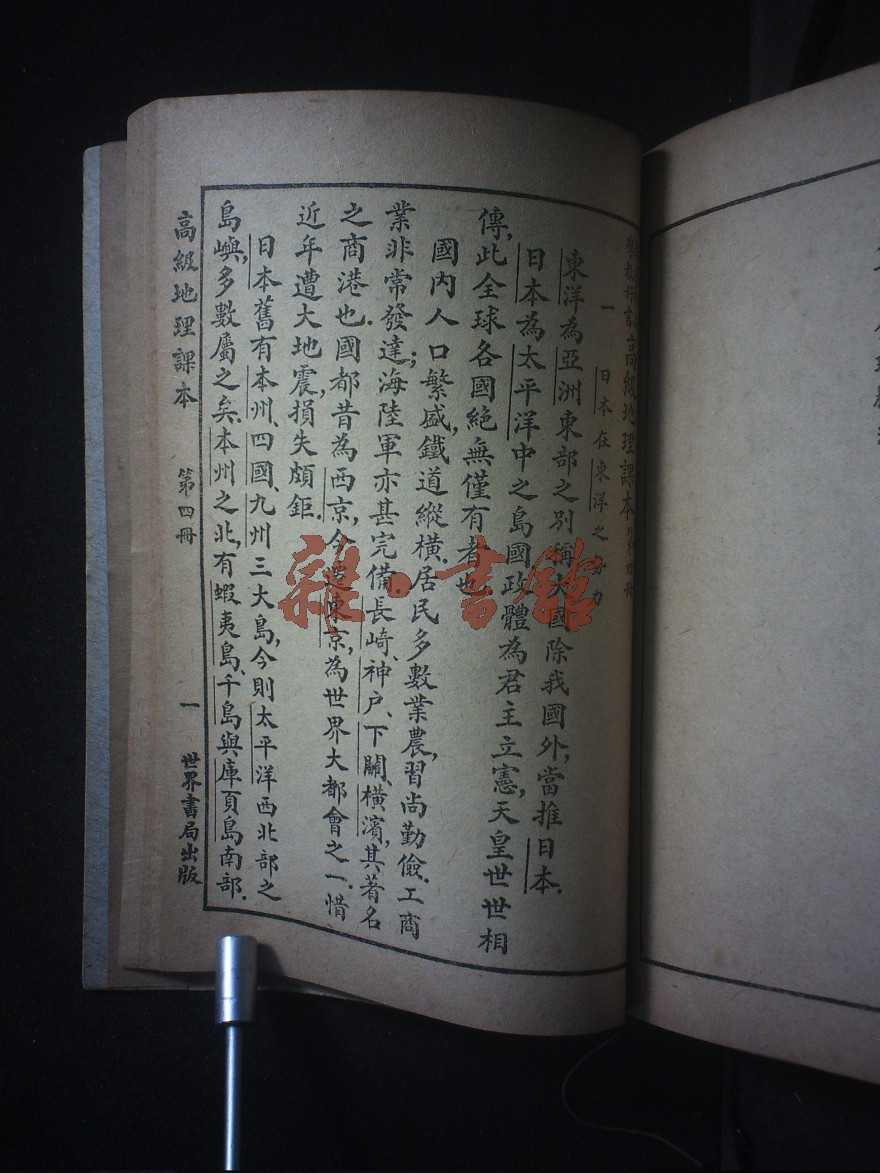 教科書高級地理課本第四冊
一 日本在東洋之勢力
東洋為亞洲東部之別稱大國除我國外,當推日本.
日本為太平洋中之島國政體為君主立憲,天皇世世相
傳,此全球各國絕無僅有者也
國內人口繁盛,鐵道縱橫.居民多數業農,習尚勤儉.工商
業非常發達;海陸軍亦甚完備.長崎、神戶、下關、橫濱,其著名
之商港也.國都昔為西京,今遷東京,為世界大都會之一.惜
近年遭大地震,損失頗鉅.
日本舊有本州、四國、九州三大島,今則太平洋西北部之
島嶼,多數屬之矣.本州之北,有蝦夷島、千島與庫頁島南部.
高級地理課本 第四冊 一 世界書局出版
雜·書館